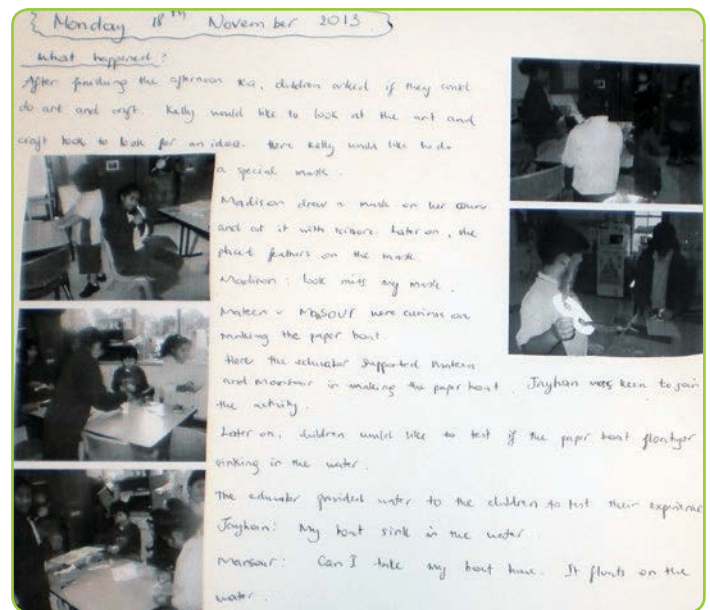 Monday 18TH November 2013
What happened?
After finishing the afternoon tea, children asked if they could
do art and craft. Kelly would like to look at the art and
craft book to look for an idea. Here Kelly would like to do
a special mask.
Madison drew a mask on her
and cut it with scissors. Later on, she
placed feathers on the mask.
Madison: look miss my mask.
Mateen & MANSOUR were curious on
making the paper boat.
Here the educator supported Mateen
and Mansour in making the paper boat. Jayhan was keen to join
the activity.
Later on, children would like to test if the paper boat
sinking in the water.
The educator provided water to the children to test their
Jayhan: My boat sink in the water
Mansour: Can I take my boat home. It floats on the
water.